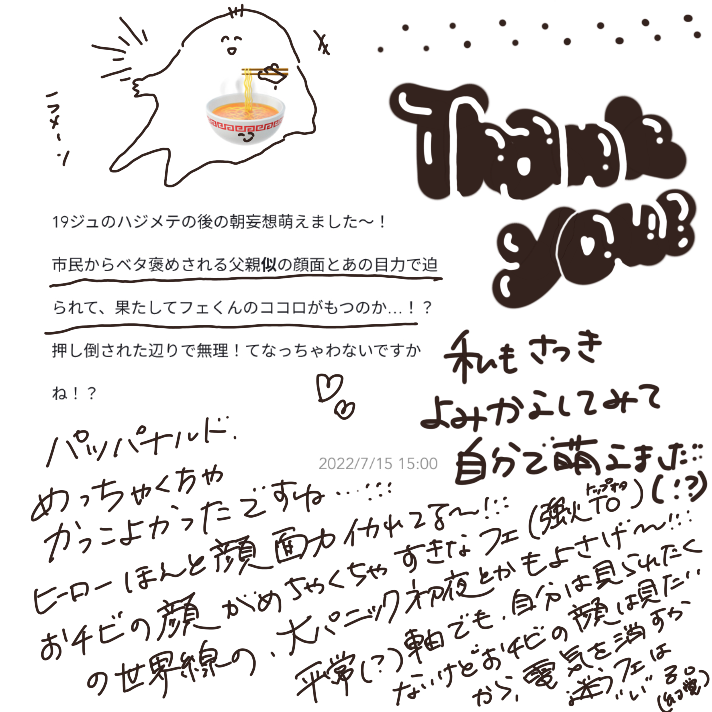 ラーメン
Thank
you!!
19ジュのハジメテの後の朝妄想萌えました〜！
市民からベタ褒めされる父親似の顔面とあの目力で迫
られて、果たしてフェくんのココロがもつのか…！？
押し倒された辺りで無理！てなっちゃわないですか
ね！？
2022/7/15 15:00
私もさっき
よみかえしてみて
自分で萌えました゛(!?)
パッパナルド.
めっちゃくちゃ
かっこよかったですね…!!!
ヒーローほんと顔面力イカれてる〜!!!
おチビの顔がめちゃくちゃすきなフェ(強火TO)
トップオタ
の世界線の、大パニック初夜とかもよさげ〜!!!
平常(?)軸でも、自分は見られたく
ないけどおチビの顔は見たい
から、電気を消すか
迷うフェは
いい